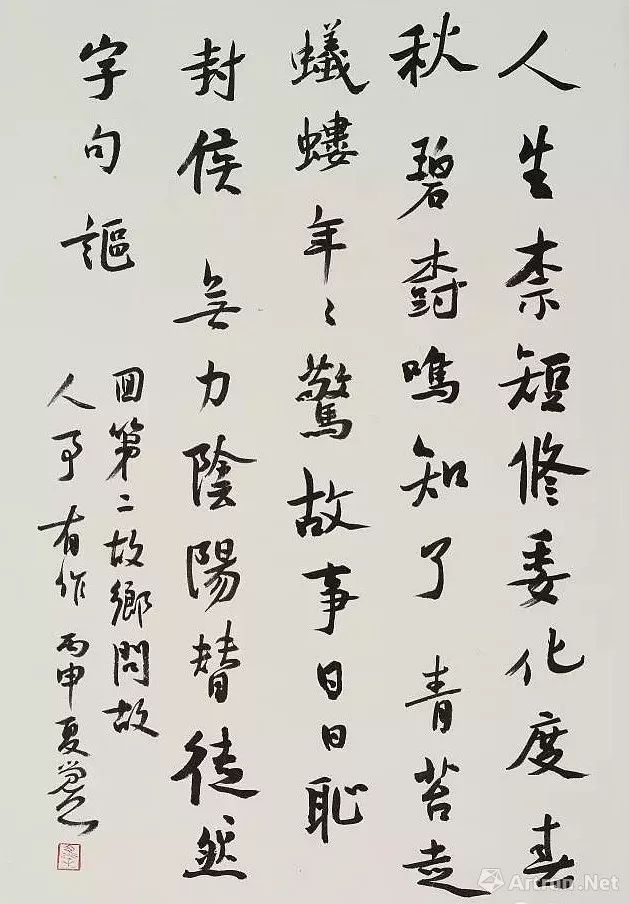 人生柰短修委化度春
秋碧樹鳴知了青苔走
蟻螻年〻驚故事日日恥
封侯無力陰陽替徒然
字句謳
回第二故鄉問故
人事有作丙申夏
Artron.Net